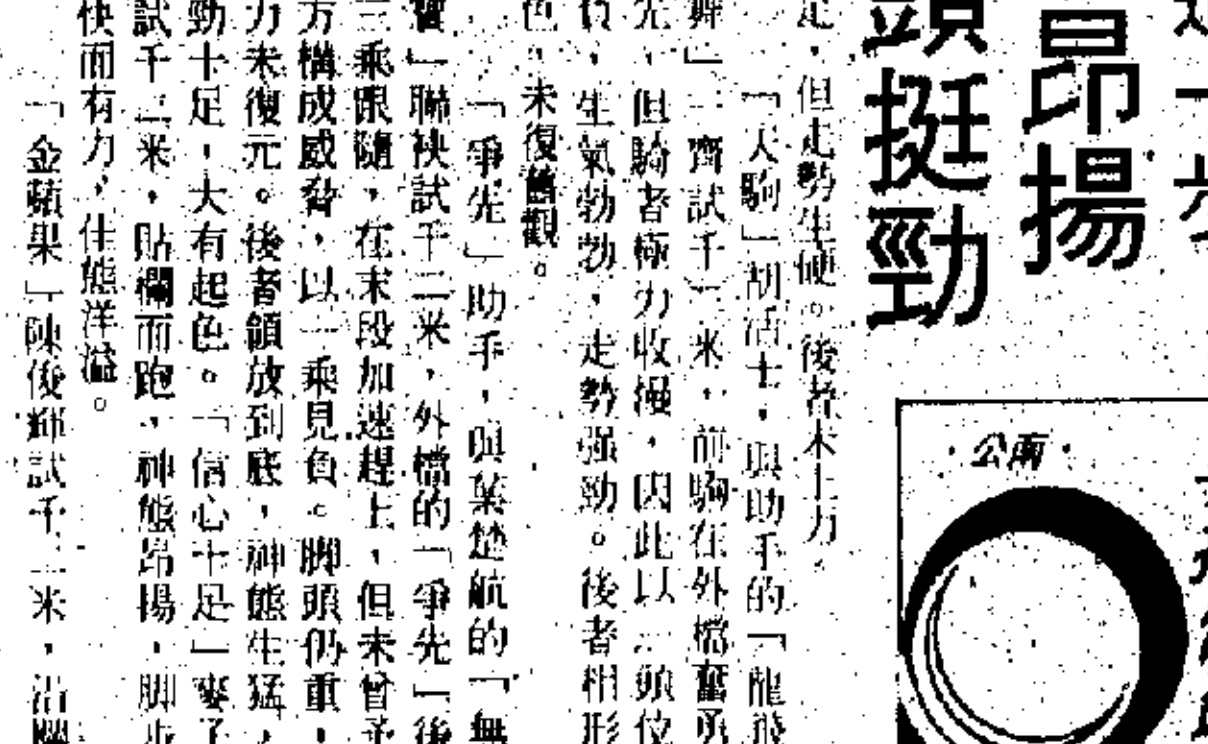 昂揚
頭挺勁
足，但走勢生硬。後者未上力。
「天駒」胡活士，與助手的「龍飛
舞」一齊試千二米，前駒在外檔奮勇
先，但騎者極力收漫，因此以二頭位
負，生氣勃勃，走勢强勁。後者相形
色，未復舊觀。
「爭先」助手，與葉楚航的「無
寶」聯袂試千二米，外檔的「爭先」後
三乘跟隨，在末段加速趕上，但未曾予
方構成威脅，以一乘見負。脚頭仍重，
力未復元。後者領放到底，神態生猛，
勁十足，大有起色。「信心十足」麥子
試千二米，貼欄而跑，神態昂揚，脚步
快而有力，佳態洋溢。
「金蘋果」陳俊輝試千二米，沿欄
·公南·